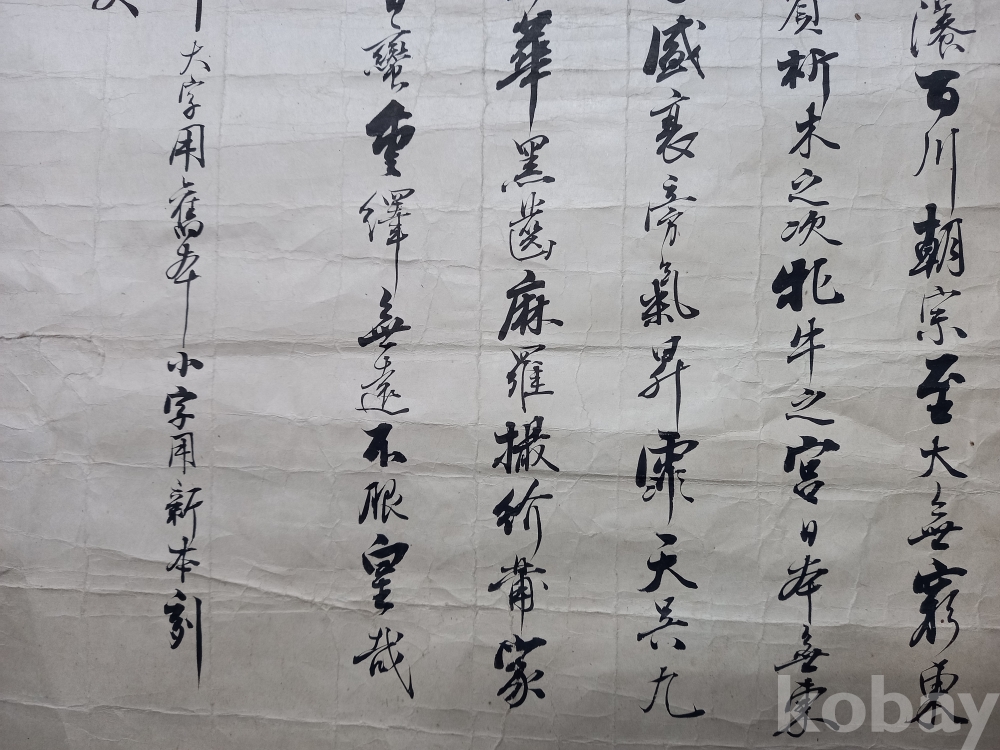 瀁百川朝宗至大無窮東
賓析木之次牝牛之宮日本無東
盛衰旁氣昇霏天吳九
華黑齒麻羅撮紒莆家
蠻重繹無遠不服皇哉
大字用舊本小字用新本刻
kobay